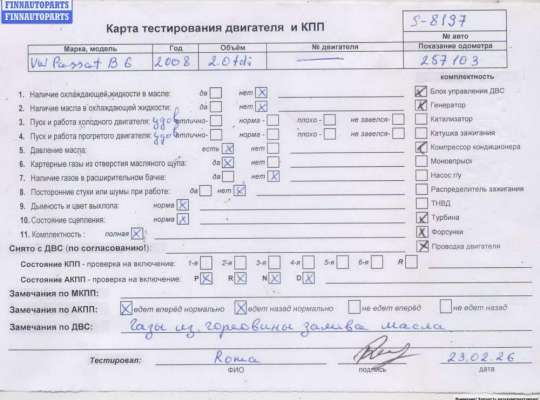 FINNAUTOPARTS
FINNAUTOPARTS
Карта тестирования двигателя и КПП
S-8197
№ авто
Марка, модель Год Объём № двигателя Показание одометра
VW Passat B6 2008 2.0tdi — 257103
комплектность
1. Наличие охлаждающей жидкости в масле: да нет
2. Наличие масла в охлаждающей жидкости: да нет
3. Пуск и работа холодного двигателя: удов отлично- норма - плохо - не завелся-
4. Пуск и работа прогретого двигателя: удов отлично- норма - плохо - не завелся-
5. Давление масла: есть нет
6. Картерные газы из отверстия масляного щупа: да нет
7. Наличие газов в расширительном бачке: да нет
8. Посторонние стуки или шумы при работе: да нет
9. Дымность и цвет выхлопа: норма
10. Состояние сцепления: норма
11. Комплектность : полная
Блок управления ДВС
Генератор
Катализатор
Катушка зажигания
Компрессор кондиционера
Моновпрыск
Насос г/у
Распределитель зажигания
ТНВД
Турбина
Форсунки
Проводка двигателя
Снято с ДВС (по согласованию!):
Состояние КПП - проверка на включение: 1-я 2-я 3-я 4-я 5-я 6-я R
Состояние АКПП - проверка на включение: P R N D
Замечания по МКПП:
Замечания по АКПП: едет вперёд нормально едет назад нормально не едет вперёд не едет назад
Замечания по ДВС: Газы из горловины залива масла.
Тестировал: Roma 23.02.26
ФИО подпись дата